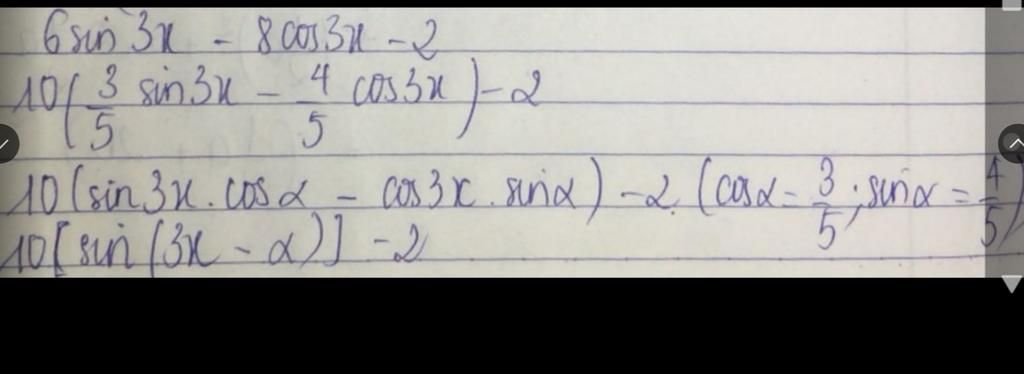 6 sin 3x - 8 cos 3x - 2
10( 3/5 sin 3x - 4/5 cos 3x ) - 2
10 (sin 3x . cos α - cos 3x . sin α) - 2. (cos α = 3/5 ; sin α = 4/5)
10 [ sin (3x - α) ] - 2